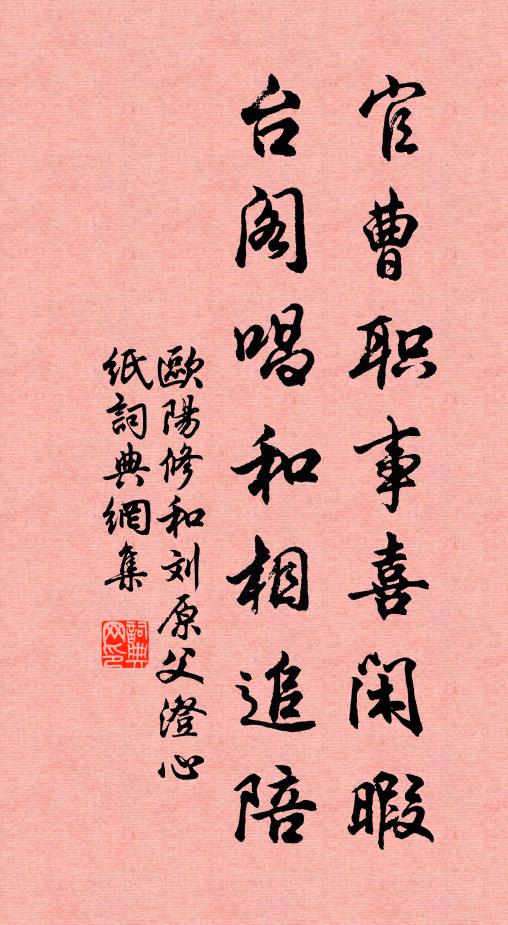 官曹职事喜闲暇
台阁唱和相追陪
歐陽修和刘原父澄心
纸詞典網集
詞典网印